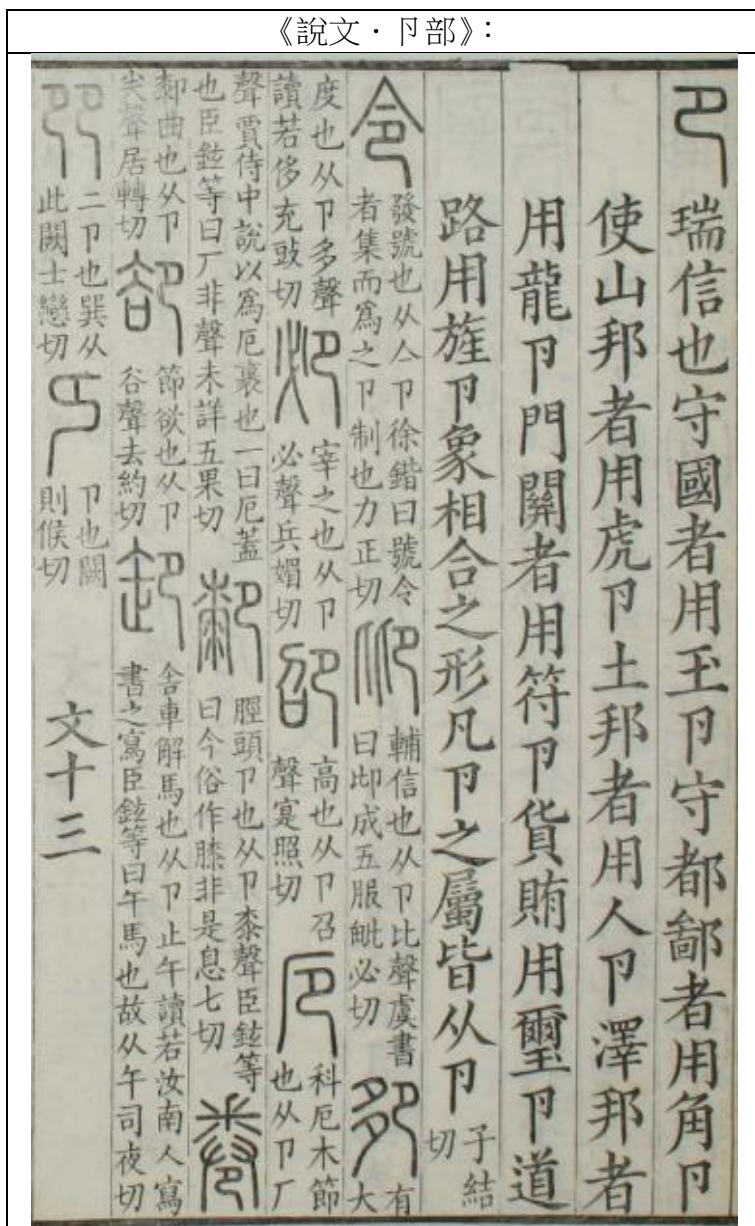 《說文·卪部》：
卪 瑞信也守國者用玉卪守都鄙者用角卪
使山邦者用虎卪土邦者用人卪澤邦者
用龍卪門關者用符卪貨賄用璽卪道
路用旌卪象相合之形凡卪之屬皆从卪 子結切
令 發號也从亼卪徐鍇曰號令者集而爲之卪制也力正切 𠨒 輔信也从卪比聲虞書曰𠨒成五服毗必切 𠨘 有大
度也从卪多聲讀若侈充豉切 𠨚 宰之也从卪必聲兵媚切 卲 高也从卪召聲寔照切 厄 科厄木節也从卪厂
聲賈侍中說以爲厄裹也一曰厄蓋也臣鉉等曰厂非聲未詳五果切 厀 脛頭卪也从卪桼聲臣鉉等曰今俗作膝非是息七切 卷
厀曲也从卪𢍏聲居轉切 卻 節欲也从卪谷聲去約切 卸 舍車解馬也从卪止午讀若汝南人寫書之寫臣鉉等曰午馬也故从午司夜切
𠨎 二卪也巽从此闕士戀切 𠨍 卪也闕則候切 文十三